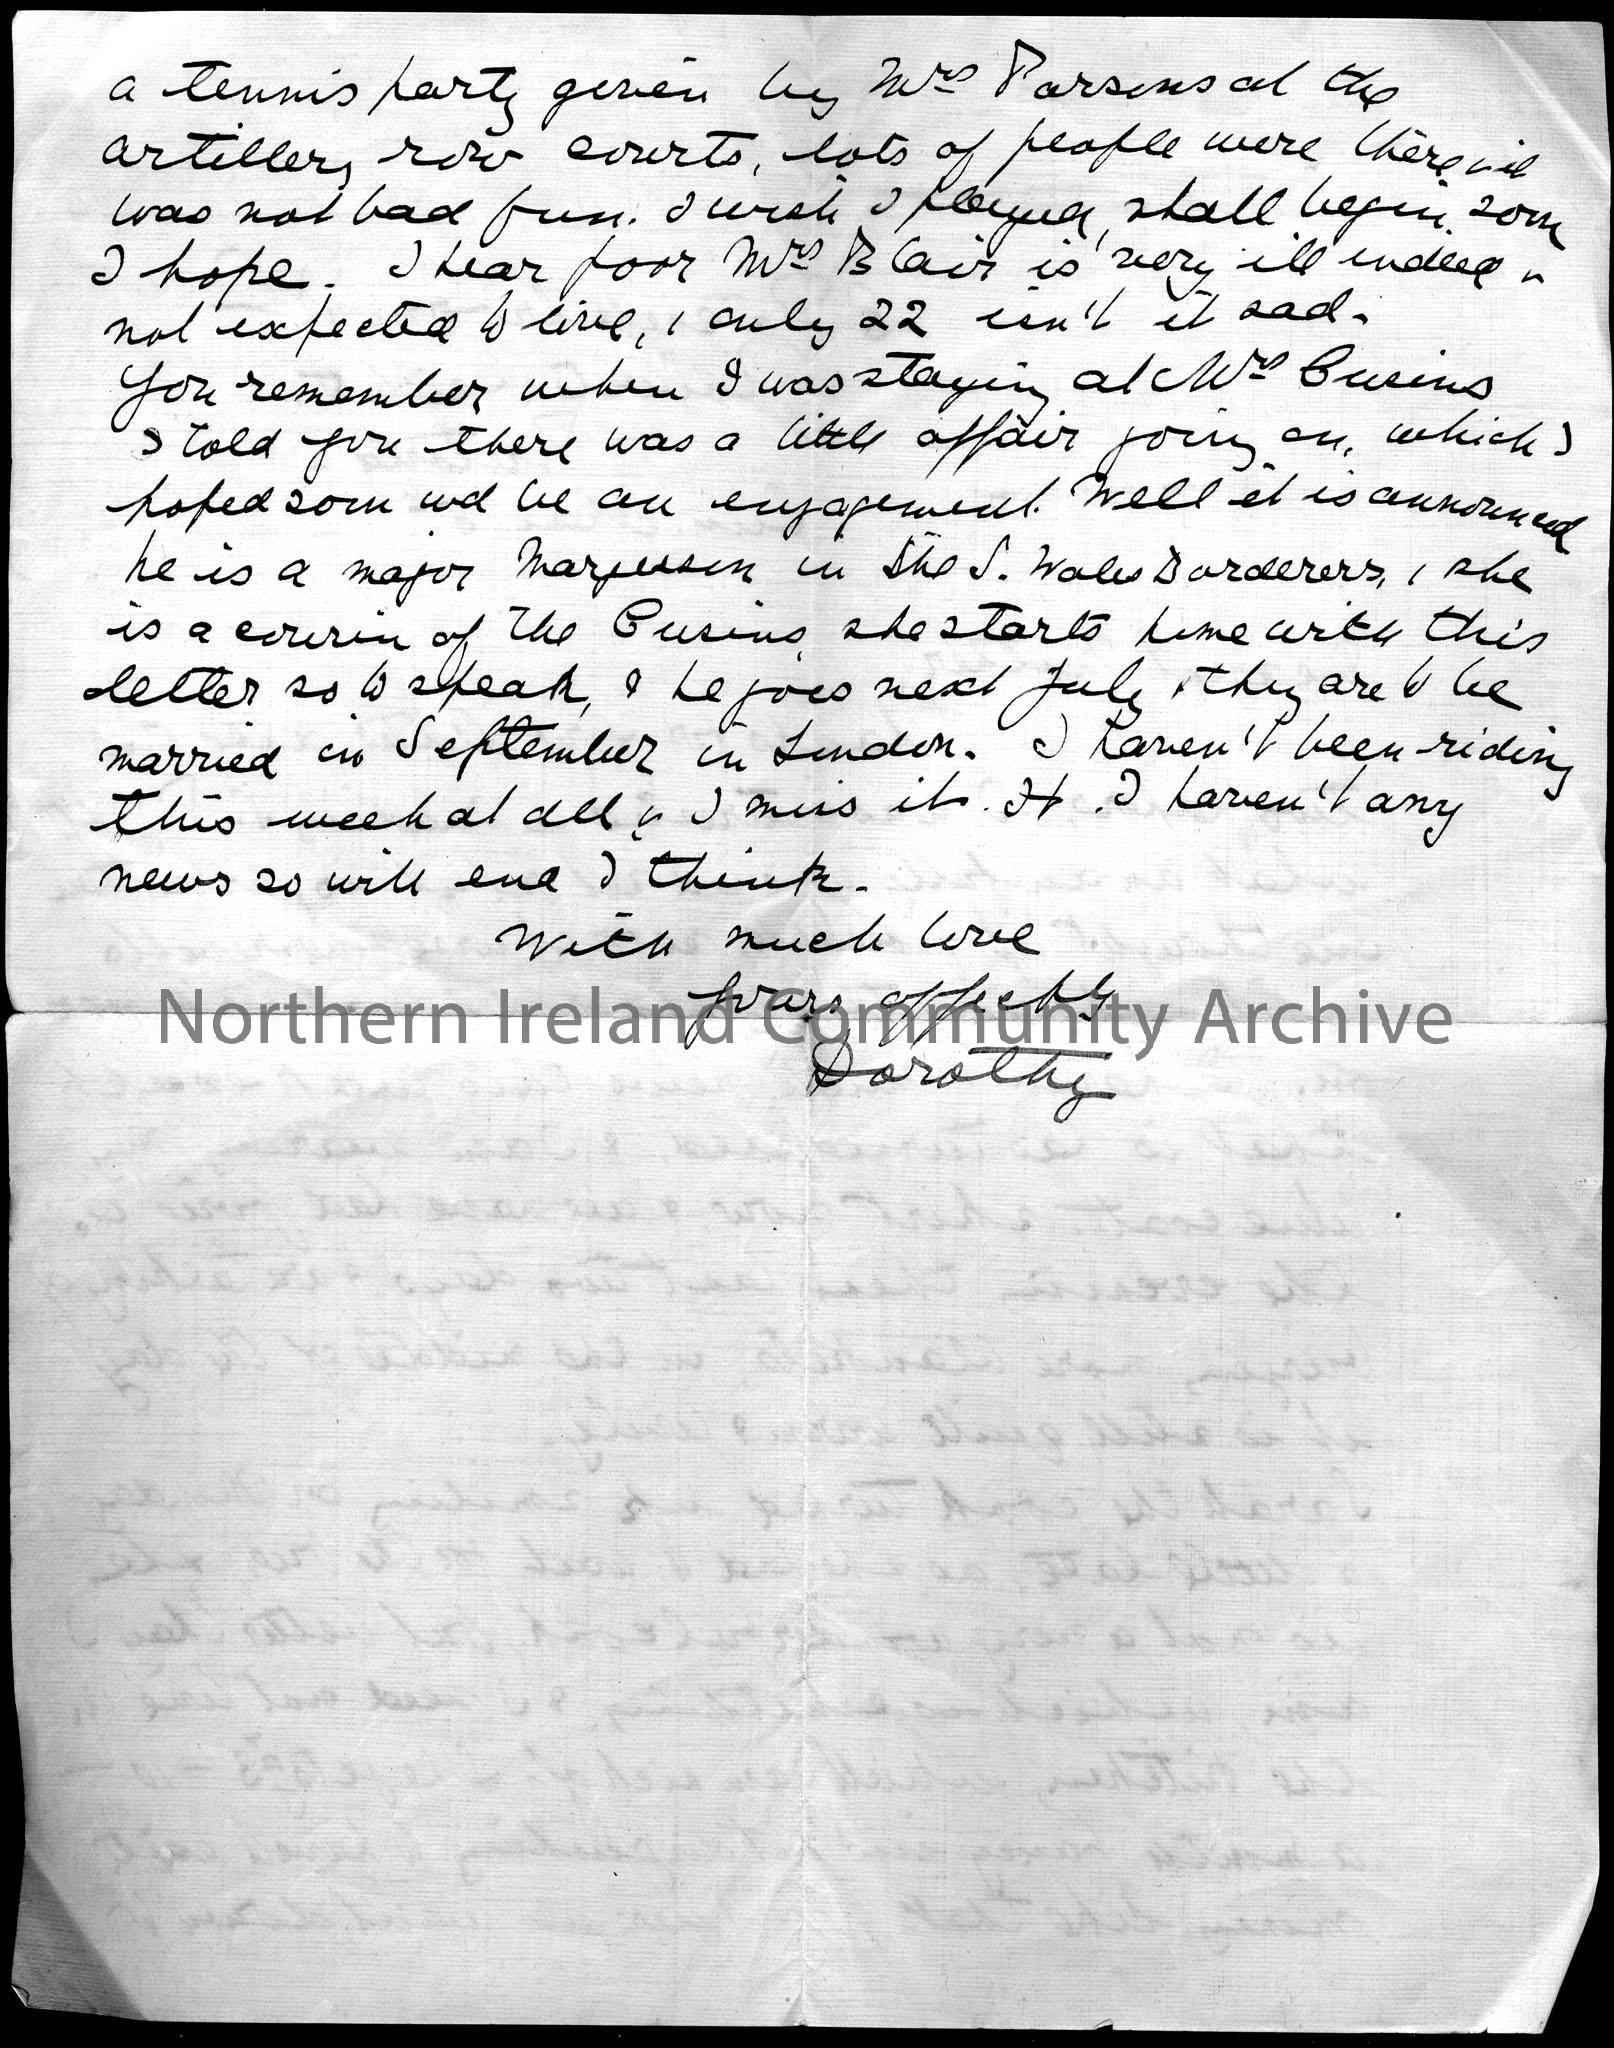 a tennis party given by Mrs Parsons at the
artillery row courts, lots of people were there & it
was not bad fun. I wish I played, shall begin soon
I hope. I hear poor Mrs Blair is very ill indeed &
not expected to live, & only 22 isn't it sad.
You remember when I was staying at Mrs Cusins
I told you there was a little affair going on, which I
hoped soon wd be an engagement. Well it is announced
he is a major Margesson in the S. Wales Borderers, & she
is a cousin of the Cusins, she starts home with this
letter so to speak, & he goes next July & they are to be
married in September in London. I haven't been riding
this week at all & I miss it. I haven't any
news so will end I think.
With much love
yours affectly
Northern Ireland Community Archive
Dorothy